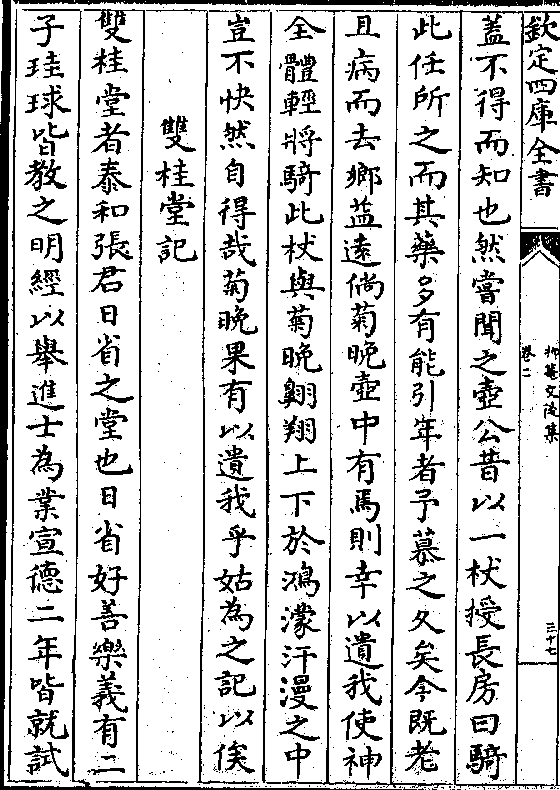 欽定四庫全書
抑菴文後集
卷二
三十七
蓋不得而知也然嘗聞之壺公昔以一杖授長房曰騎
此任所之而其藥多有能引年者予慕之久矣今既老
且病而去鄉益遠倘菊晚壺中有焉則幸以遺我使神
全體輕將騎此杖與菊晚翺翔上下於鴻濛汗漫之中
豈不快然自得哉菊晚果有以遺我乎姑為之記以俟
雙桂堂記
雙桂堂者泰和張君日省之堂也日省好善樂義有二
子珪球皆教之明經以舉進士為業宣德二年皆就試